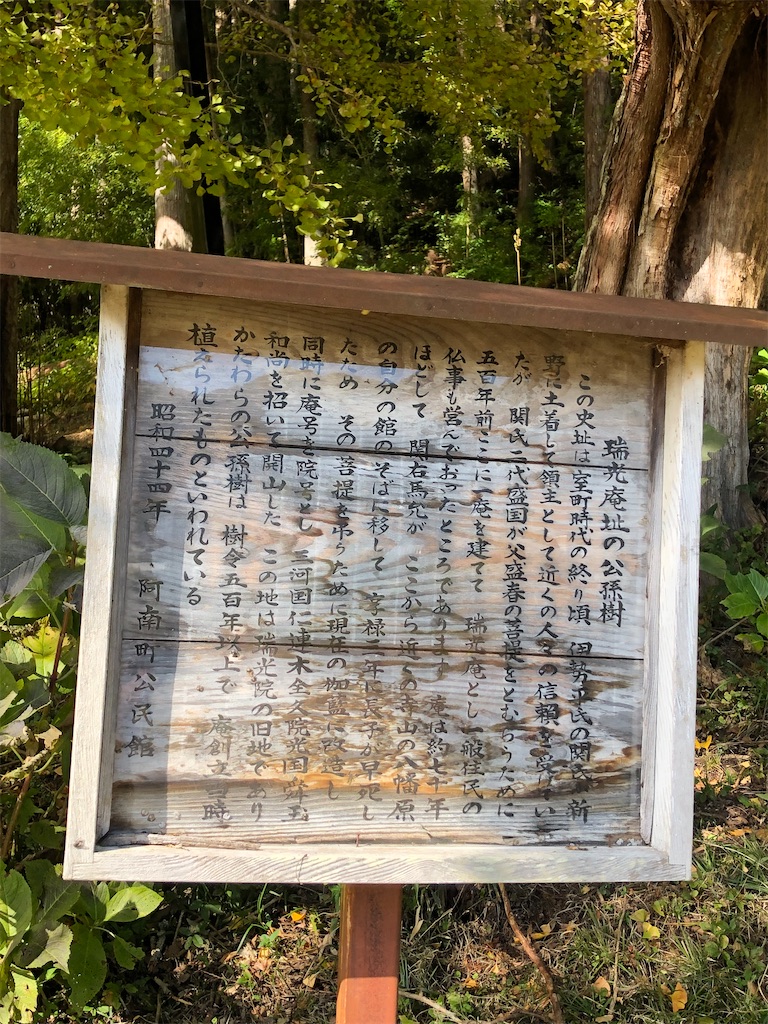 瑞光庵址の公孫樹
この史址は室町時代の終り頃 伊勢平氏の関氏 新
野に土着して領主として近くの人々の信頼を受てい
たが 関氏二代盛国が父盛春の菩提をとむらうために
五百年前ここに一庵を建てて 瑞光庵とし一般住民の
仏事も営んでおったところであります 庵は約七十年
ほどして 関右馬允が ここから近くの寺山の八幡原
の自分の館のそばに移して 享禄二年に長子が早死し
たため その菩提を吊らために現在の伽藍に改造し
同時に庵号を院号とし 三河国仁連木全久院光国舜玉
和尚を招いて開山した この地は瑞光院の旧地であり
かたわらの公孫樹は 樹令五百年以上で 庵創立当時
植えられたものといわれている
昭和四十四年 阿南町公民館